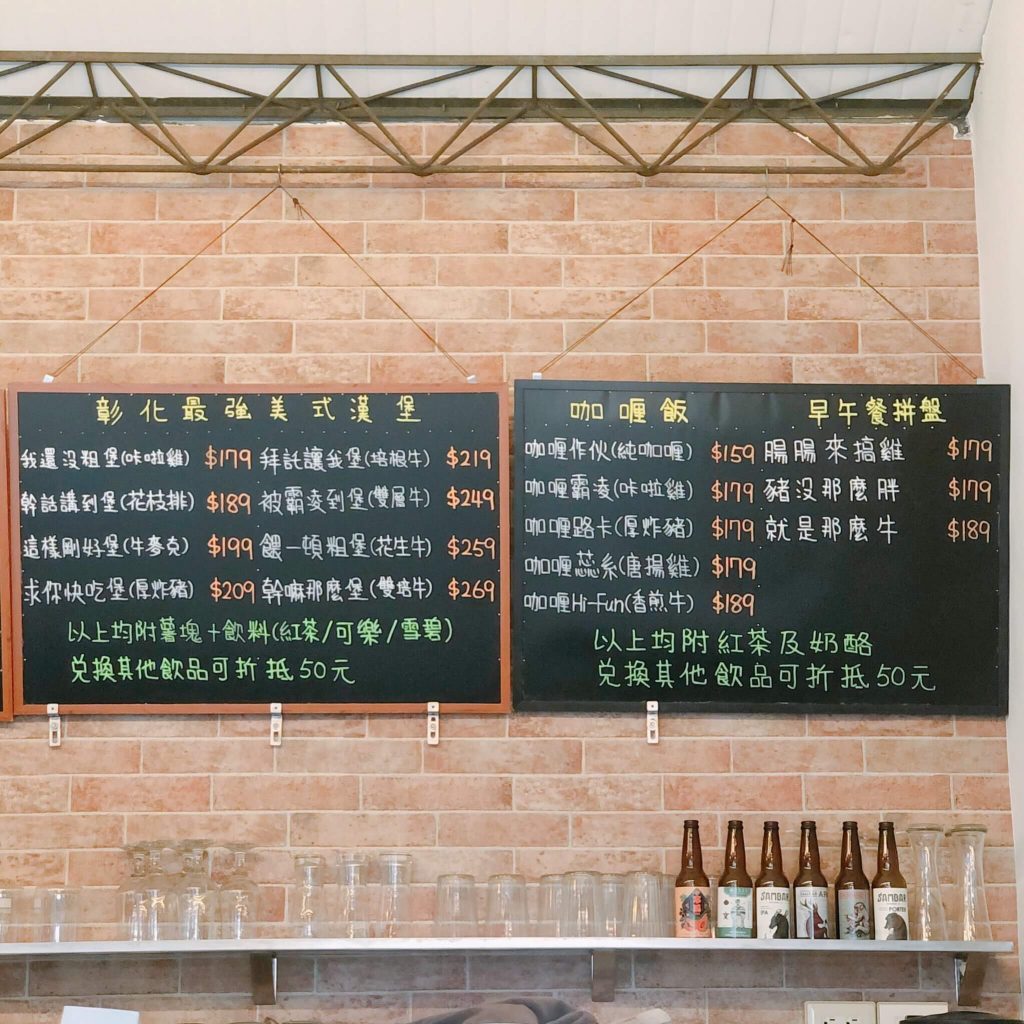 彰化最強美式漢堡
我還沒粗堡(咔啦雞) $179 拜託讓我堡(培根牛) $219
幹話講到堡(花枝排) $189 被霸凌到堡(雙層牛) $249
這樣剛好堡(牛麥克) $199 餵一頓粗堡(花生牛) $259
求你快吃堡(厚炸豬) $209 幹嘛那麼堡(雙培牛) $269
以上均附薯塊+飲料(紅茶/可樂/雪碧)
兌換其他飲品可折抵50元
咖喱飯 早午餐拼盤
咖喱作伙(純咖喱) $159 腸腸來搞雞 $179
咖喱霸凌(咔啦雞) $179 豬沒那麼胖 $179
咖喱路卡(厚炸豬) $179 就是那麼牛 $189
咖喱蕊系(唐揚雞) $179
咖喱Hi-Fun(香煎牛) $189
以上均附紅茶及奶酪
兌換其他飲品可折抵50元
JAMBAR
IPA
JAMBAR
PORTER